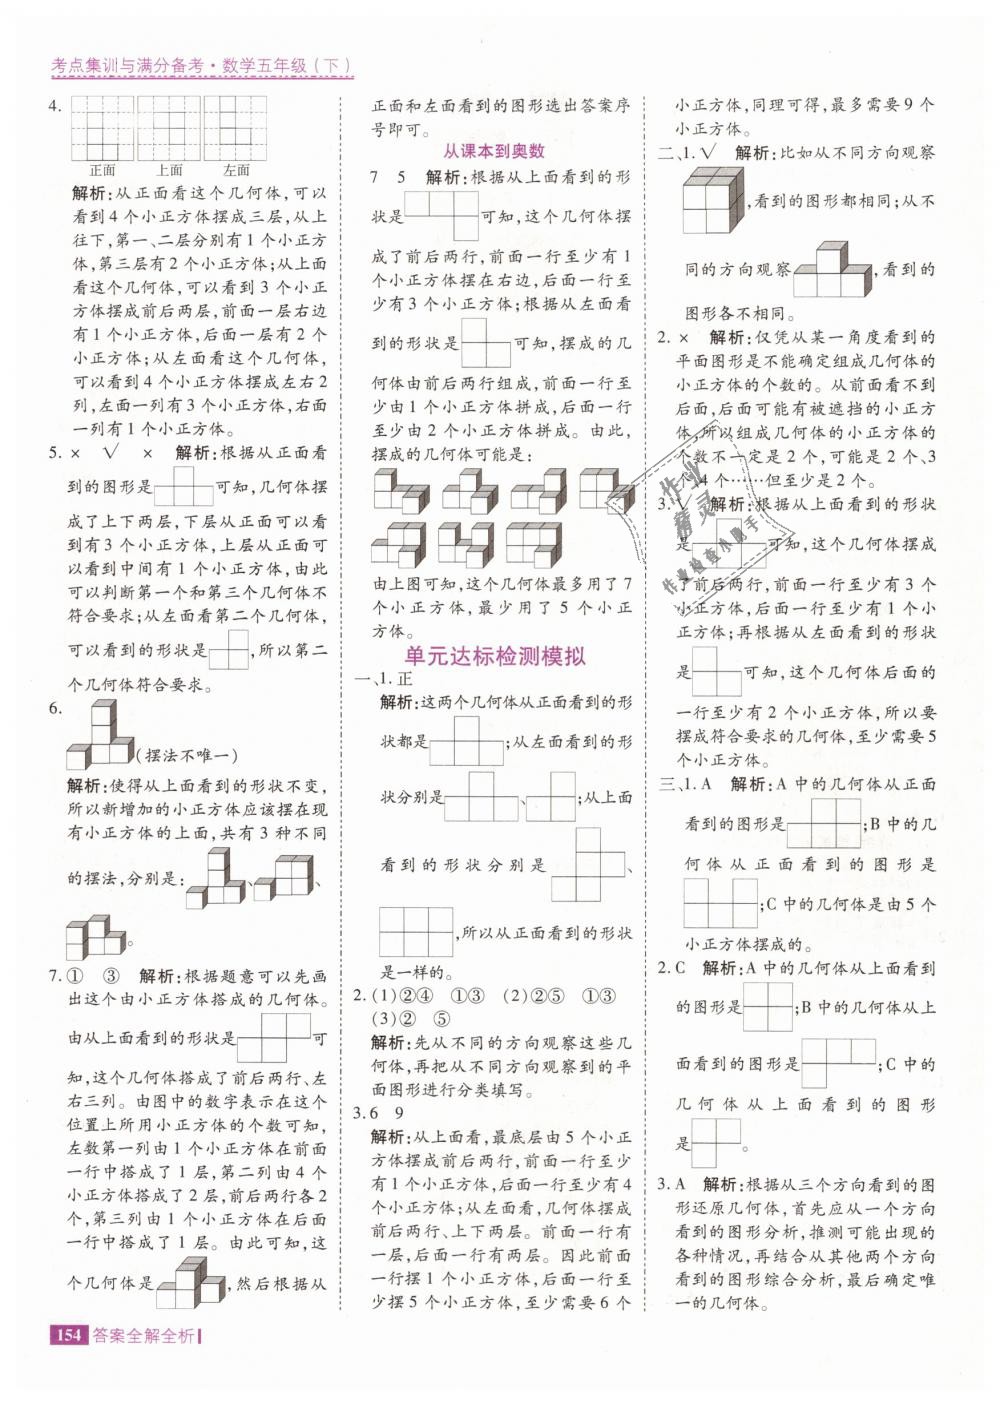 考点集训与满分备考·数学五年级(下)
4.
正面 上面 左面
解析:从正面看这个几何体,可以
看到4个小正方体摆成三层,从上
往下,第一、二层分别有1个小正方
体,第三层有2个小正方体;从上面
看这个几何体,可以看到3个小正
方体摆成前后两层,前面一层右边
有1个小正方体,后面一层有2个
小正方体;从左面看这个几何体,
可以看到4个小正方体摆成左右2
列,左面一列有3个小正方体,右面
一列有1个小正方体。
5. × √ × 解析:根据从正面看
到的图形是 可知,几何体摆
成了上下两层,下层从正面可以看
到有3个小正方体,上层从正面可
以看到中间有1个小正方体,由此
可以判断第一个和第三个几何体不
符合要求;从左面看第二个几何体,
可以看到的形状是 ,所以第二
个几何体符合要求。
6.
(摆法不唯一)
解析:使得从上面看到的形状不变,
所以新增加的小正方体应该摆在现
有小正方体的上面,共有3种不同
的摆法,分别是: 、 、
。
7. ① ③ 解析:根据题意可以先画
出这个由小正方体搭成的几何体。
由从上面看到的形状是 可
知,这个几何体搭成了前后两行、左
右三列。由图中的数字表示在这个
位置上所用小正方体的个数可知,
左数第一列由1个小正方体在前面
一行中搭成了1层,第二列由4个
小正方体搭成了2层,前后两行各2
个,第三列由1个小正方体在后面
一行中搭成了1层。由此可知,这
个几何体是 ,然后根据从
正面和左面看到的图形选出答案序
号即可。
从课本到奥数
7 5 解析:根据从上面看到的形
状是 可知,这个几何体摆
成了前后两行,前面一行至少有1
个小正方体摆在右边,后面一行至
少有3个小正方体;根据从左面看
到的形状是 可知,摆成的几
何体由前后两行组成,前面一行至
少由1个小正方体拼成,后面一行
至少由2个小正方体拼成。由此,
摆成的几何体可能是:
由上图可知,这个几何体最多用了7
个小正方体,最少用了5个小正
方体。
单元达标检测模拟
一、1.正
解析:这两个几何体从正面看到的形
状都是 ;从左面看到的形
状分别是 、 ;从上面
看到的形状分别是 、
,所以从正面看到的形状
是一样的。
2.(1)②④ ①③ (2)②⑤ ①③
(3)② ⑤
解析:先从不同的方向观察这些几
何体,再把从不同方向观察到的平
面图形进行分类填写。
3.6 9
解析:从上面看,最底层由5个小正
方体摆成前后两行,前面一行至少
有1个小正方体,后面一行至少有4
个小正方体;从左面看,几何体摆成
前后两行、上下两层。前面一行有
一层,后面一行有两层。因此前面
一行摆1个小正方体,后面一行至
少摆5个小正方体,至少需要6个
小正方体,同理可得,最多需要9个
小正方体。
二、1.√ 解析:比如从不同方向观察
,看到的图形都相同;从不
同的方向观察 ,看到的
图形各不相同。
2. × 解析:仅凭从某一角度看到的
平面图形是不能确定组成几何体的
小正方体的个数的。从前面看不到
后面,后面可能有被遮挡的小正方
体,所以组成几何体的小正方体的
个数不一定是2个,可能是2个、3
个、4个……但至少是2个。
3.√ 解析:根据从上面看到的形状
是 可知,这个几何体摆成
了前后两行,前面一行至少有3个
小正方体,后面一行至少有1个小
正方体;再根据从左面看到的形状
是 可知,这个几何体后面的
一行至少有2个小正方体,所以要
摆成符合要求的几何体,至少需要5
个小正方体。
三、1.A 解析:A中的几何体从正面
看到的图形是 ;B中的几
何体从正面看到的图形是
;C中的几何体是由5个
小正方体摆成的。
2.C 解析:A中的几何体从上面看到
的图形是 ;B中的几何体从上
面看到的图形是 ;C中的
几何体从上面看到的图形
是 。
3.A 解析:根据从三个方向看到的图
形还原几何体,首先应从一个方向
看到的图形分析,推测可能出现的
各种情况,再结合从其他两个方向
看到的图形综合分析,最后确定唯
一的几何体。
作业精灵
作业检查小助手
154 答案全解全析